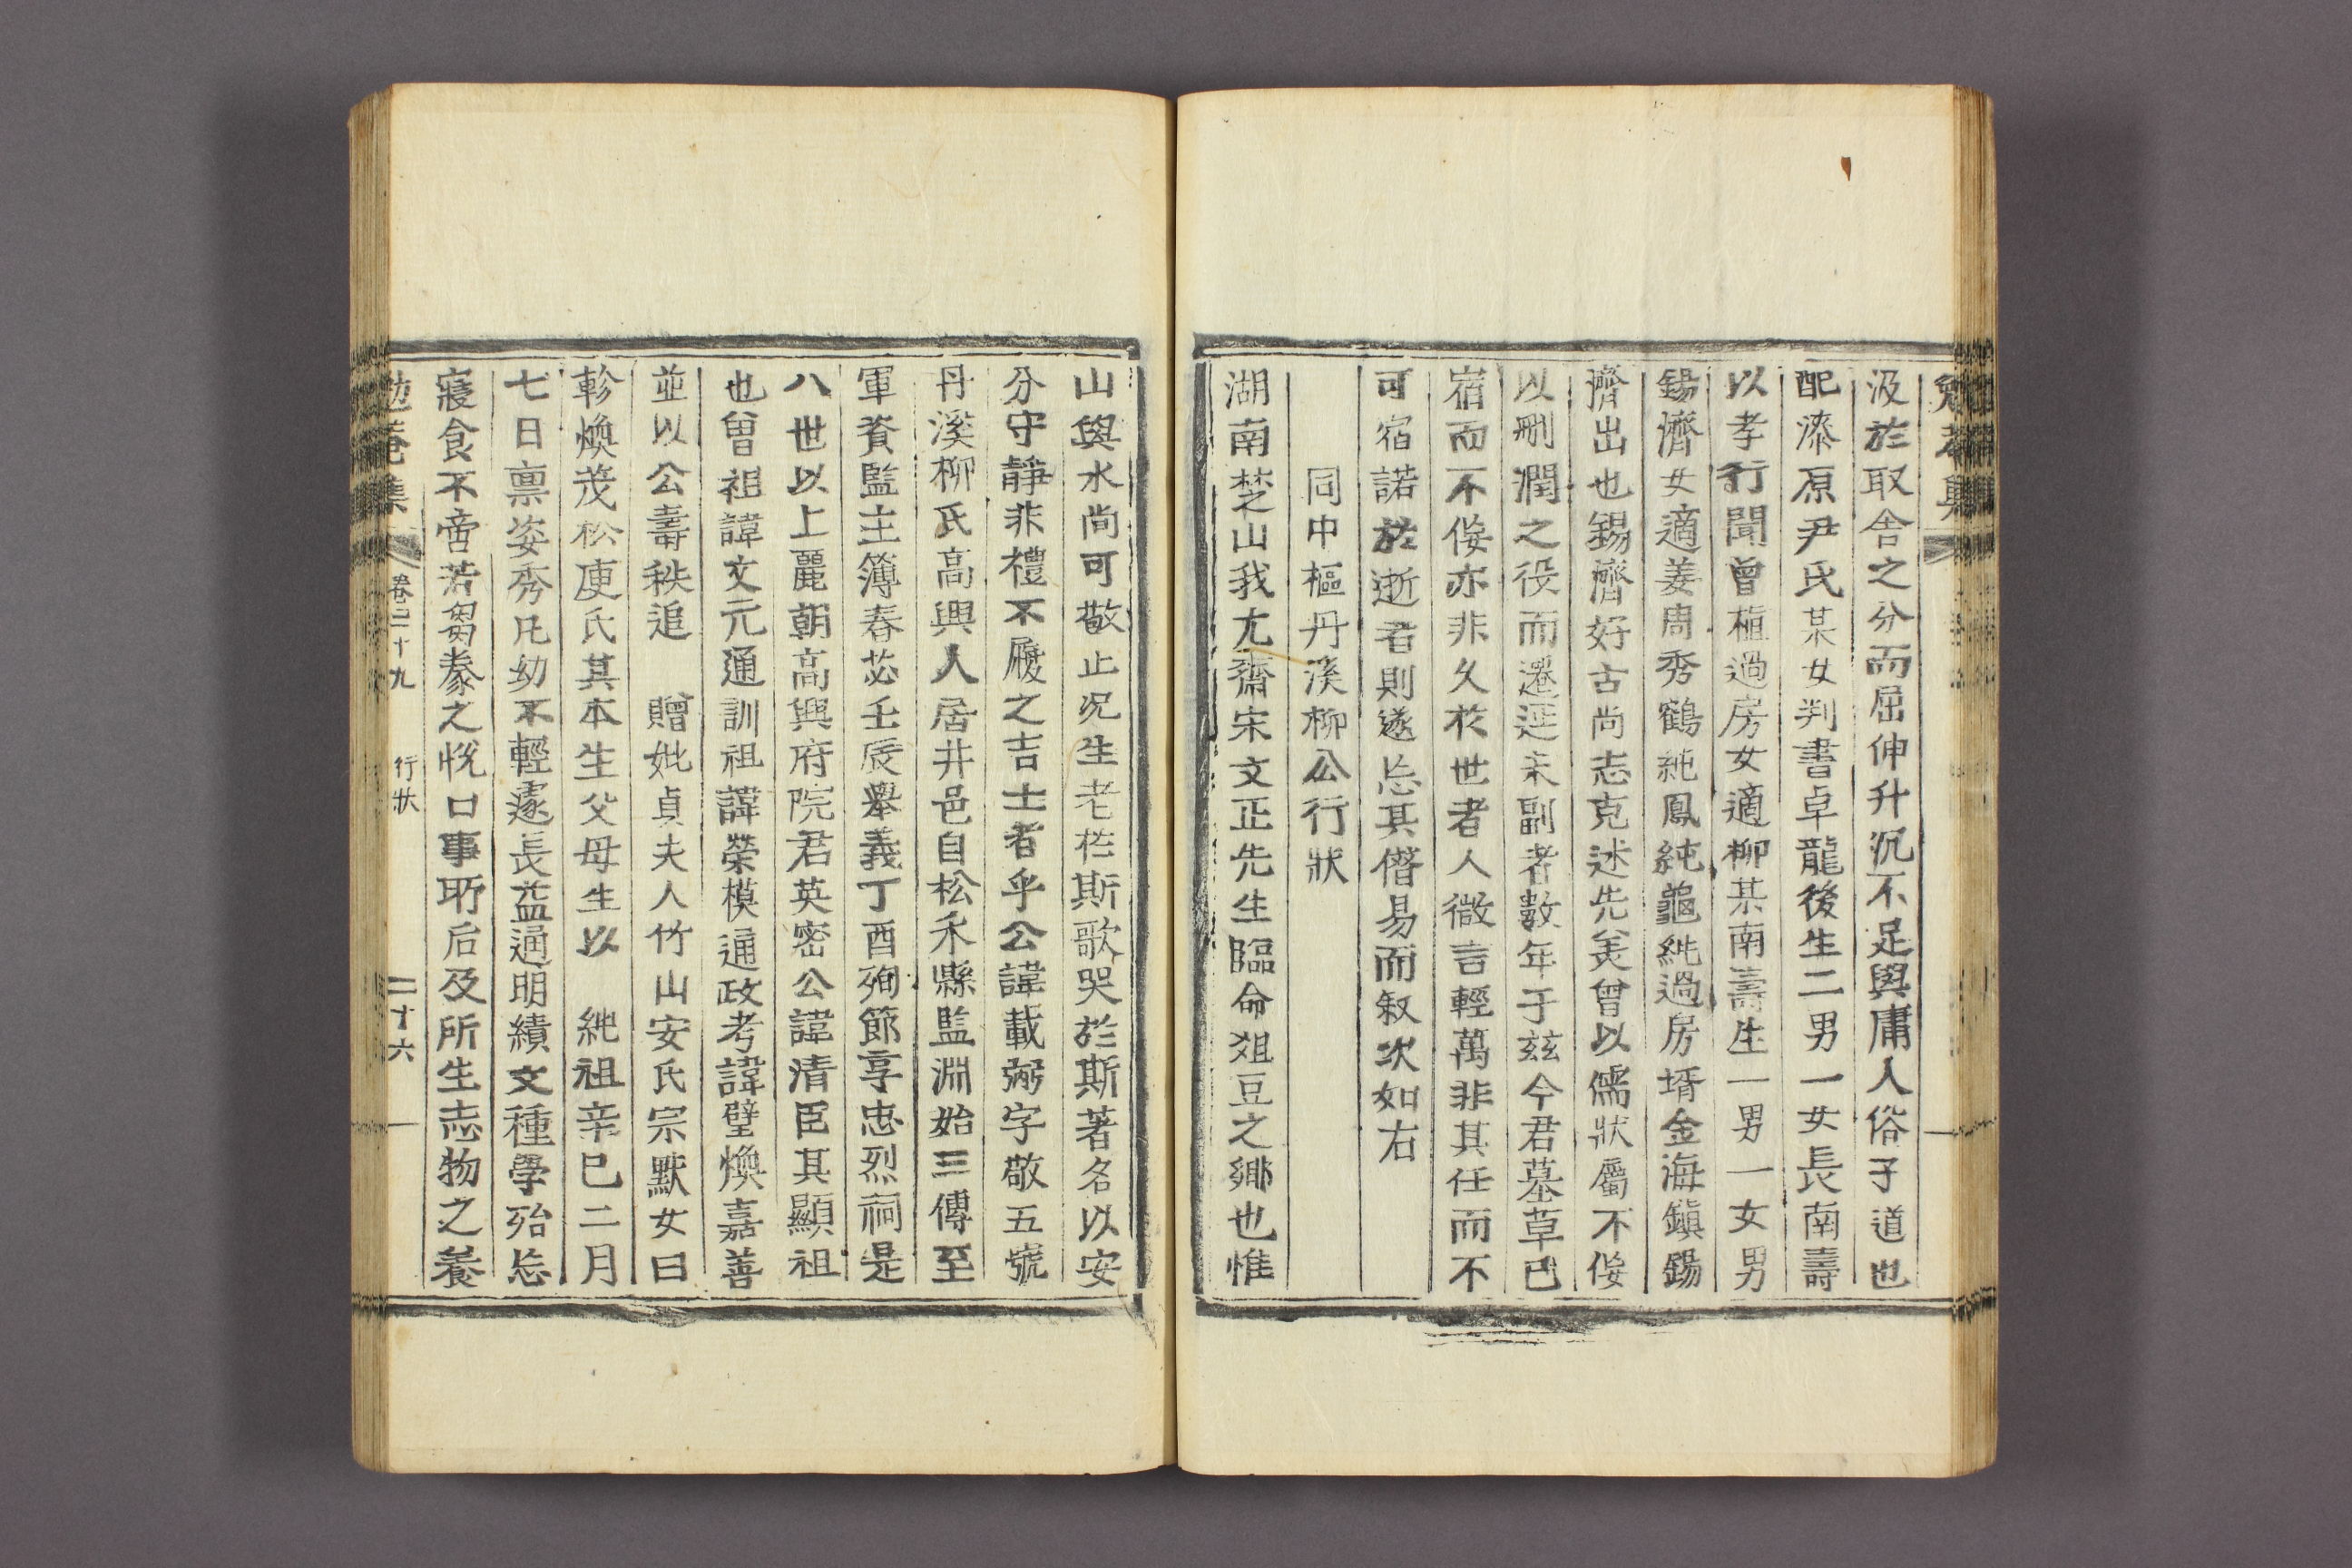 汲於取舍之分而屈伸升沉不足與庸人俗子道也
配漆原尹氏某女判書卓龍後生二男一女長南壽
以孝行聞曾植過房女適柳某南壽生一男一女男
錫濟女適姜周秀鶴純鳳純龜純過房壻金海鎭錫
擠出也錫濟好古尚志克述先美曾以儒狀屬不佞
以刪潤之役而遷延未副者數年于玆今君墓草已
宿而不佞亦非久於世者人微言輕萬非其任而不
可宿諾於逝者則遂忘其僭易而敍次如右
同中樞丹溪柳公行狀
湖南楚山我尤齋宋文正先生臨命俎豆之鄉也惟
山與水尚可敬止况生老於斯歌哭於斯著名以安
分守靜非禮不履之吉士者乎公諱載弼字敬五號
丹溪柳氏高興人居井邑自松禾縣監淵始三傳至
軍資監主簿春苾壬辰擧義丁酉殉節享忠烈祠是
八世以上麗朝高興府院君英密公諱清臣其顯祖
也曾祖諱文元通訓祖諱榮模通政考諱璧煥嘉善
並以公壽秩追 贈妣貞夫人竹山安氏宗默女曰
軫煥茂松庾氏其本生父母生以 純祖辛巳二月
七日禀姿秀凡幼不輕遽長益通明績文種學殆忘
寢食不啻若芻豢之悅口事所后及所生志物之養
勉菴集 卷二十九 行狀 二十六